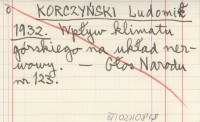 KORCZYŃSKI Ludomił
1932. Wpływ klimatu
górskiego na układ ner-
wowy. — Głos Narodu
nr 123.